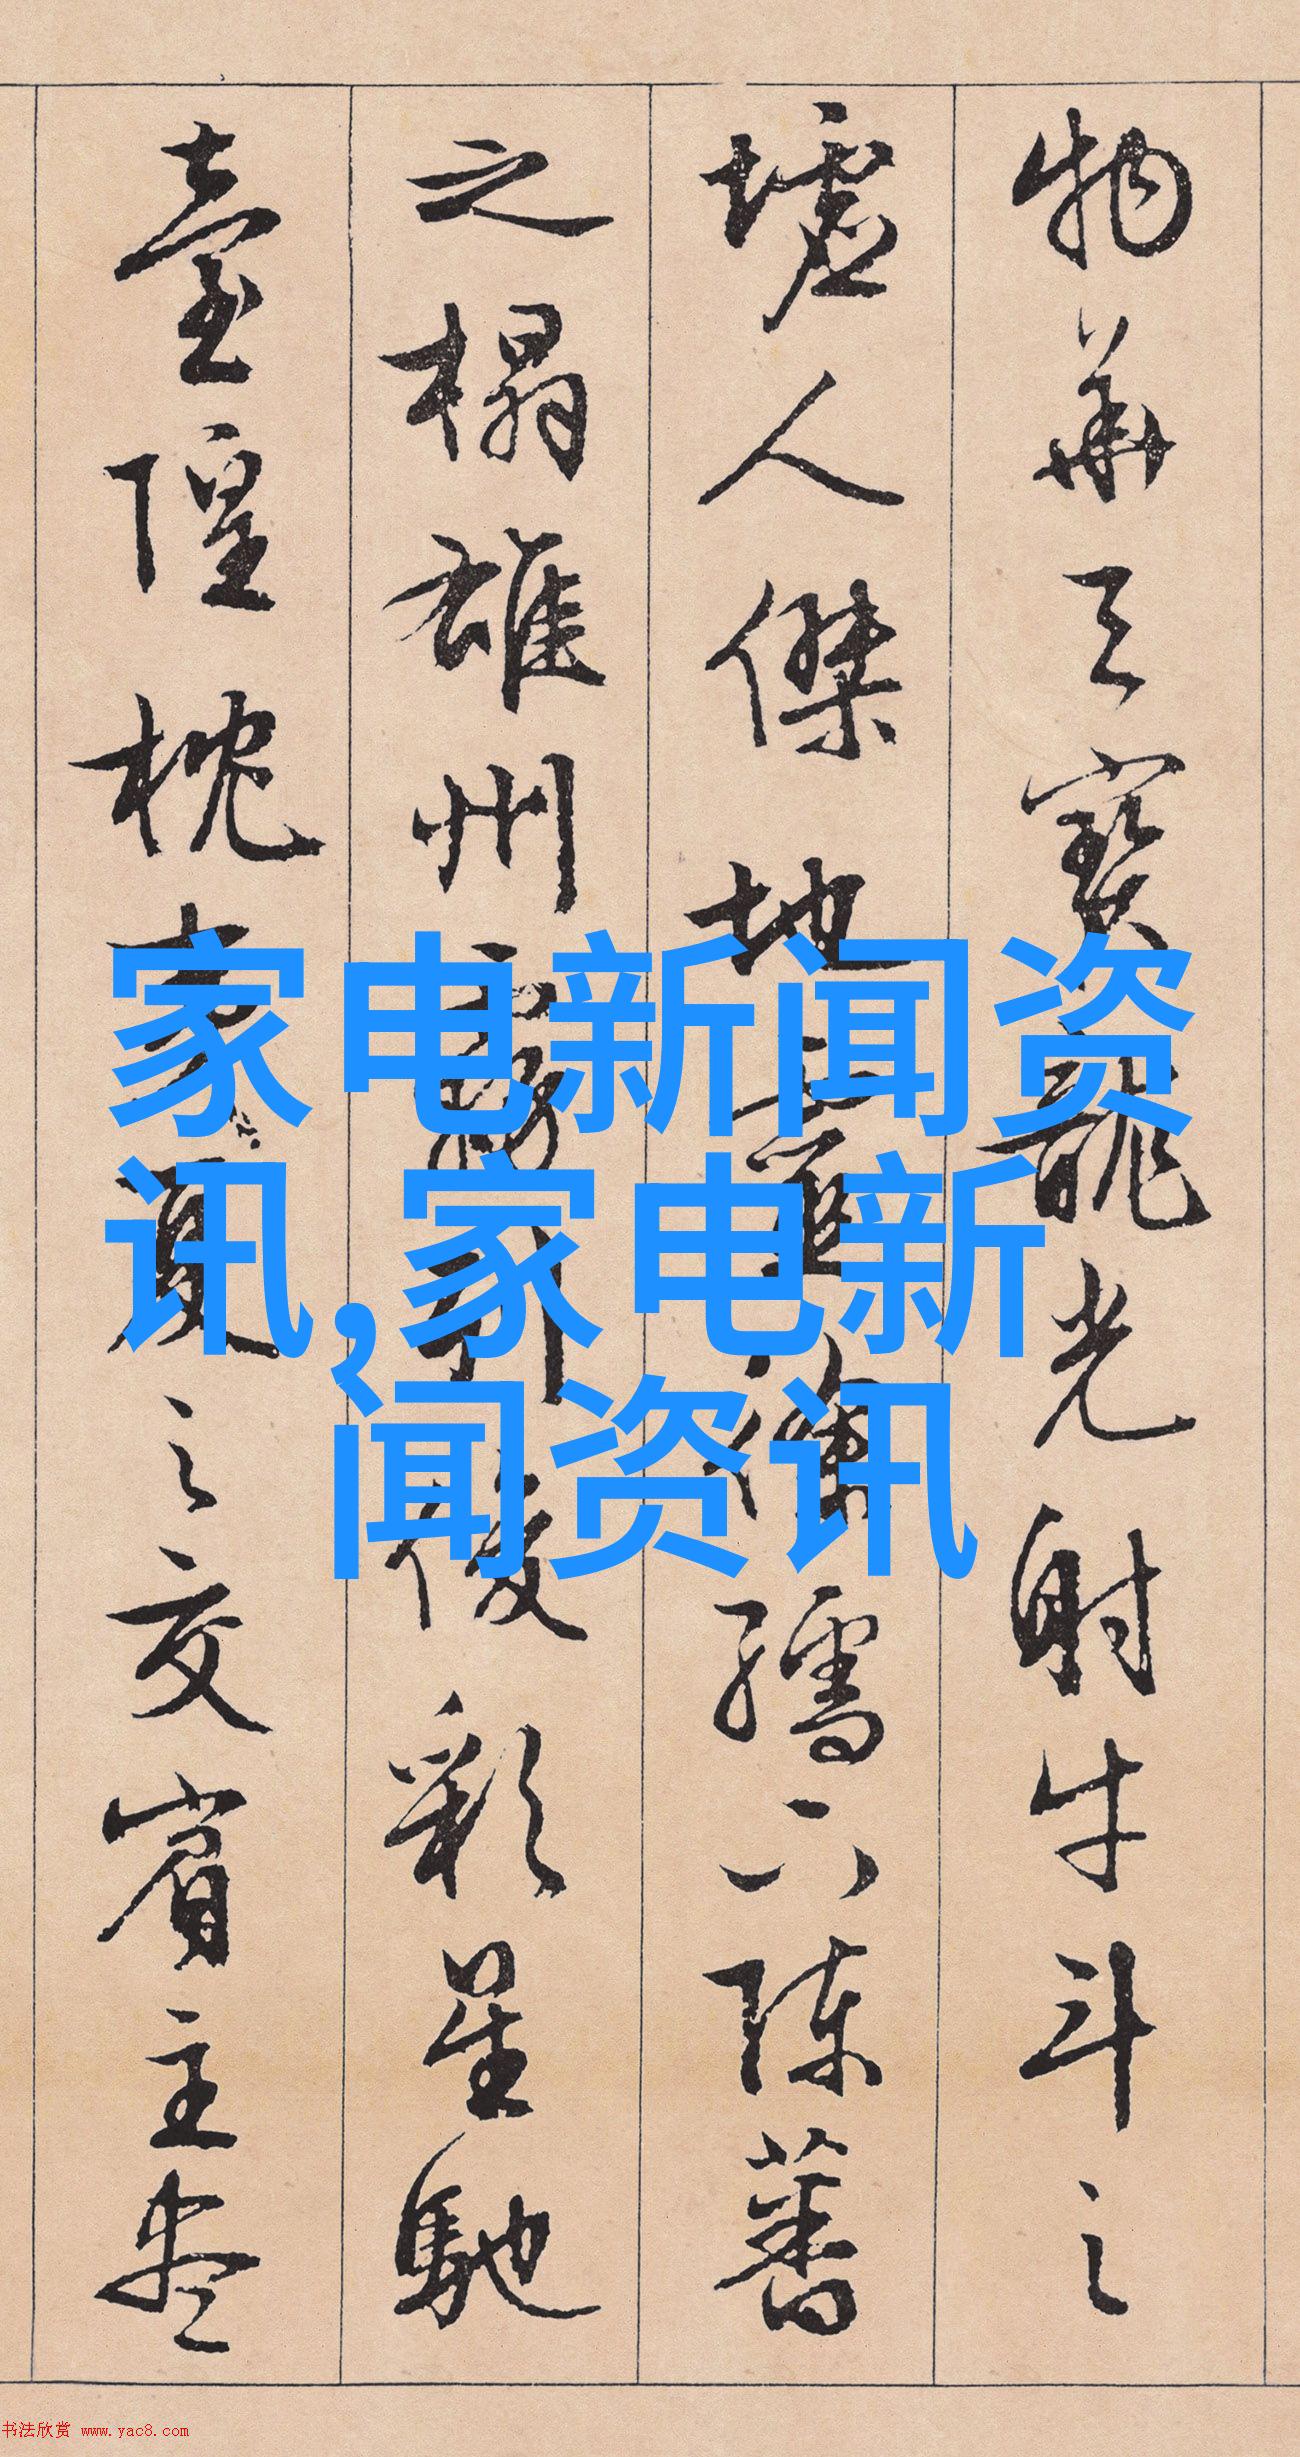 物華天寶龍光射牛斗之
墟人傑地靈徐孺下陳蕃
之榻雄州霧列俊彩星馳
臺隍枕夷夏之交賓主盡
家电新闻资
讯,家电新
闻资讯
书法欣赏 www.yac8.com